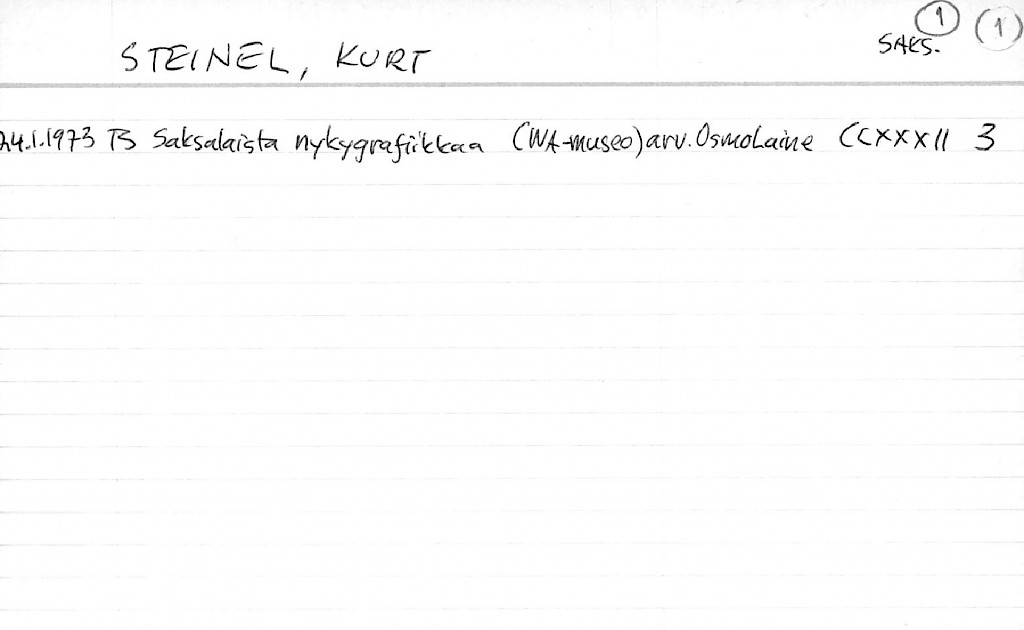 1 1
SAKS.
STEINEL, KURT
24.1.1973 TS Saksalaista nykygrafiikkaa (WA-museo) arv. Osmo Laine CCXXXII 3